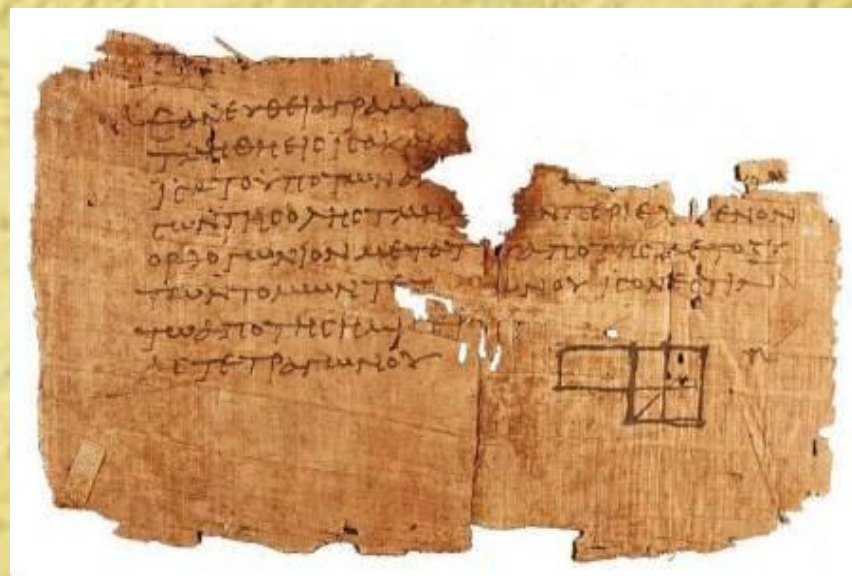 ΕΑΝΕΥΘΕΙΑΓΡΑΜΜ
ΤΜΗΘΗΕΙCΙCΑΚΑΙ
ΙCΑΤΟΥΠΟΤΩΝΑ
CΩΝΤΗCΟΛΗCΤΜΗΜ ΝΠΕΡΙΕ ΜΕΝΟΝ
ΟΡΘΟΓΩΝΙΟΝΜΕΤΑΤ ΑΠΟΤΗCΜΕΤΟΞΥ
ΤΩΝΤΟΜΩΝΤΕ ΩΝΟΥΙCΟΝΕCΤΙΝ
ΤΩΑΠΟΤΗCΗΜΙ
ΤΕΤΡΑΓΩΝΟΥ